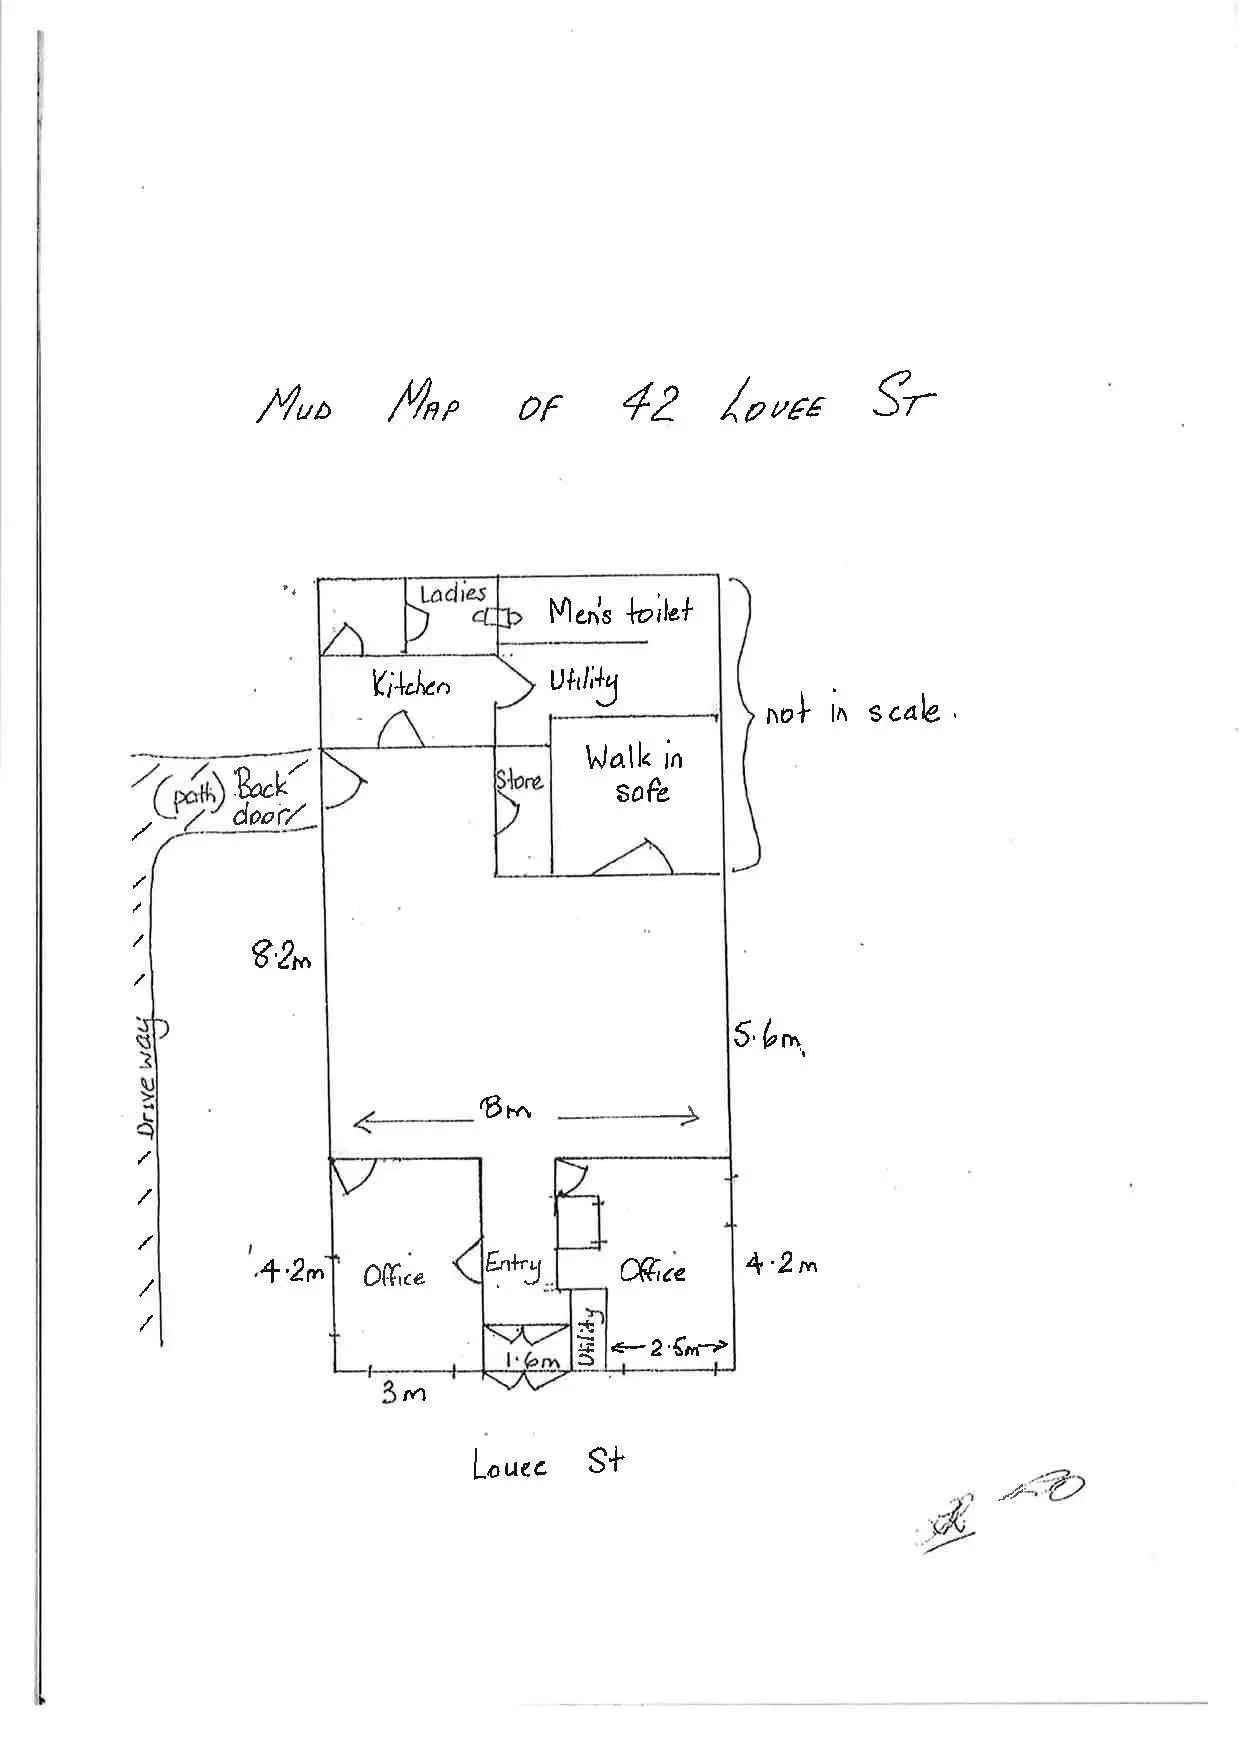 MUD MAP OF 42 LOUEE ST
Ladies
Men's toilet
Kitchen
Utility
not in scale.
Walk in
safe
Store
(path) Back
door
8.2m
5.6m
Driveway
8m
4.2m
Office
Entry
Office
4.2m
Utility
2.5m
1.6m
3m
Louee St